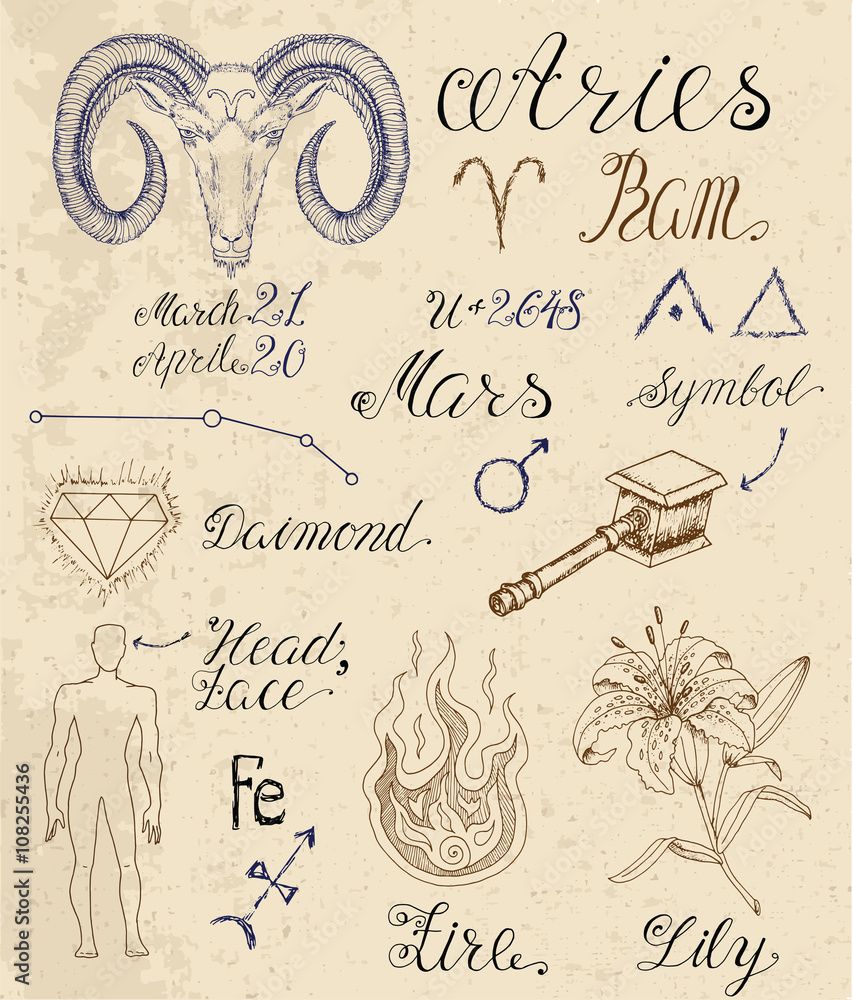 Aries
Ram
March 21
April 20
U+2648
Mars
Symbol
Daimond
Head,
Face
Fe
Fire
Lily
Adobe Stock | #108255436